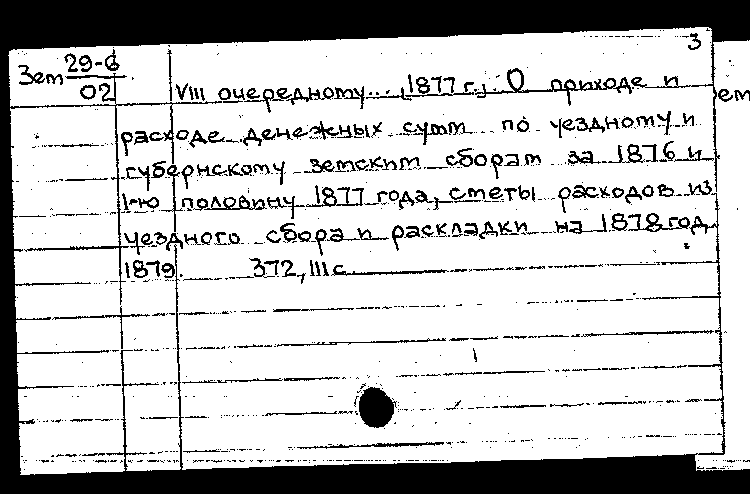 3
Зем 29-6
02
VIII очередному... [1877 г.]. О приходе и
расходе денежных сумм по уездному и
губернскому земским сборам за 1876 и
1-ю половину 1877 года, сметы расходов из
уездного сбора и раскладки на 1878 год.
1879. 372, III с.
ем